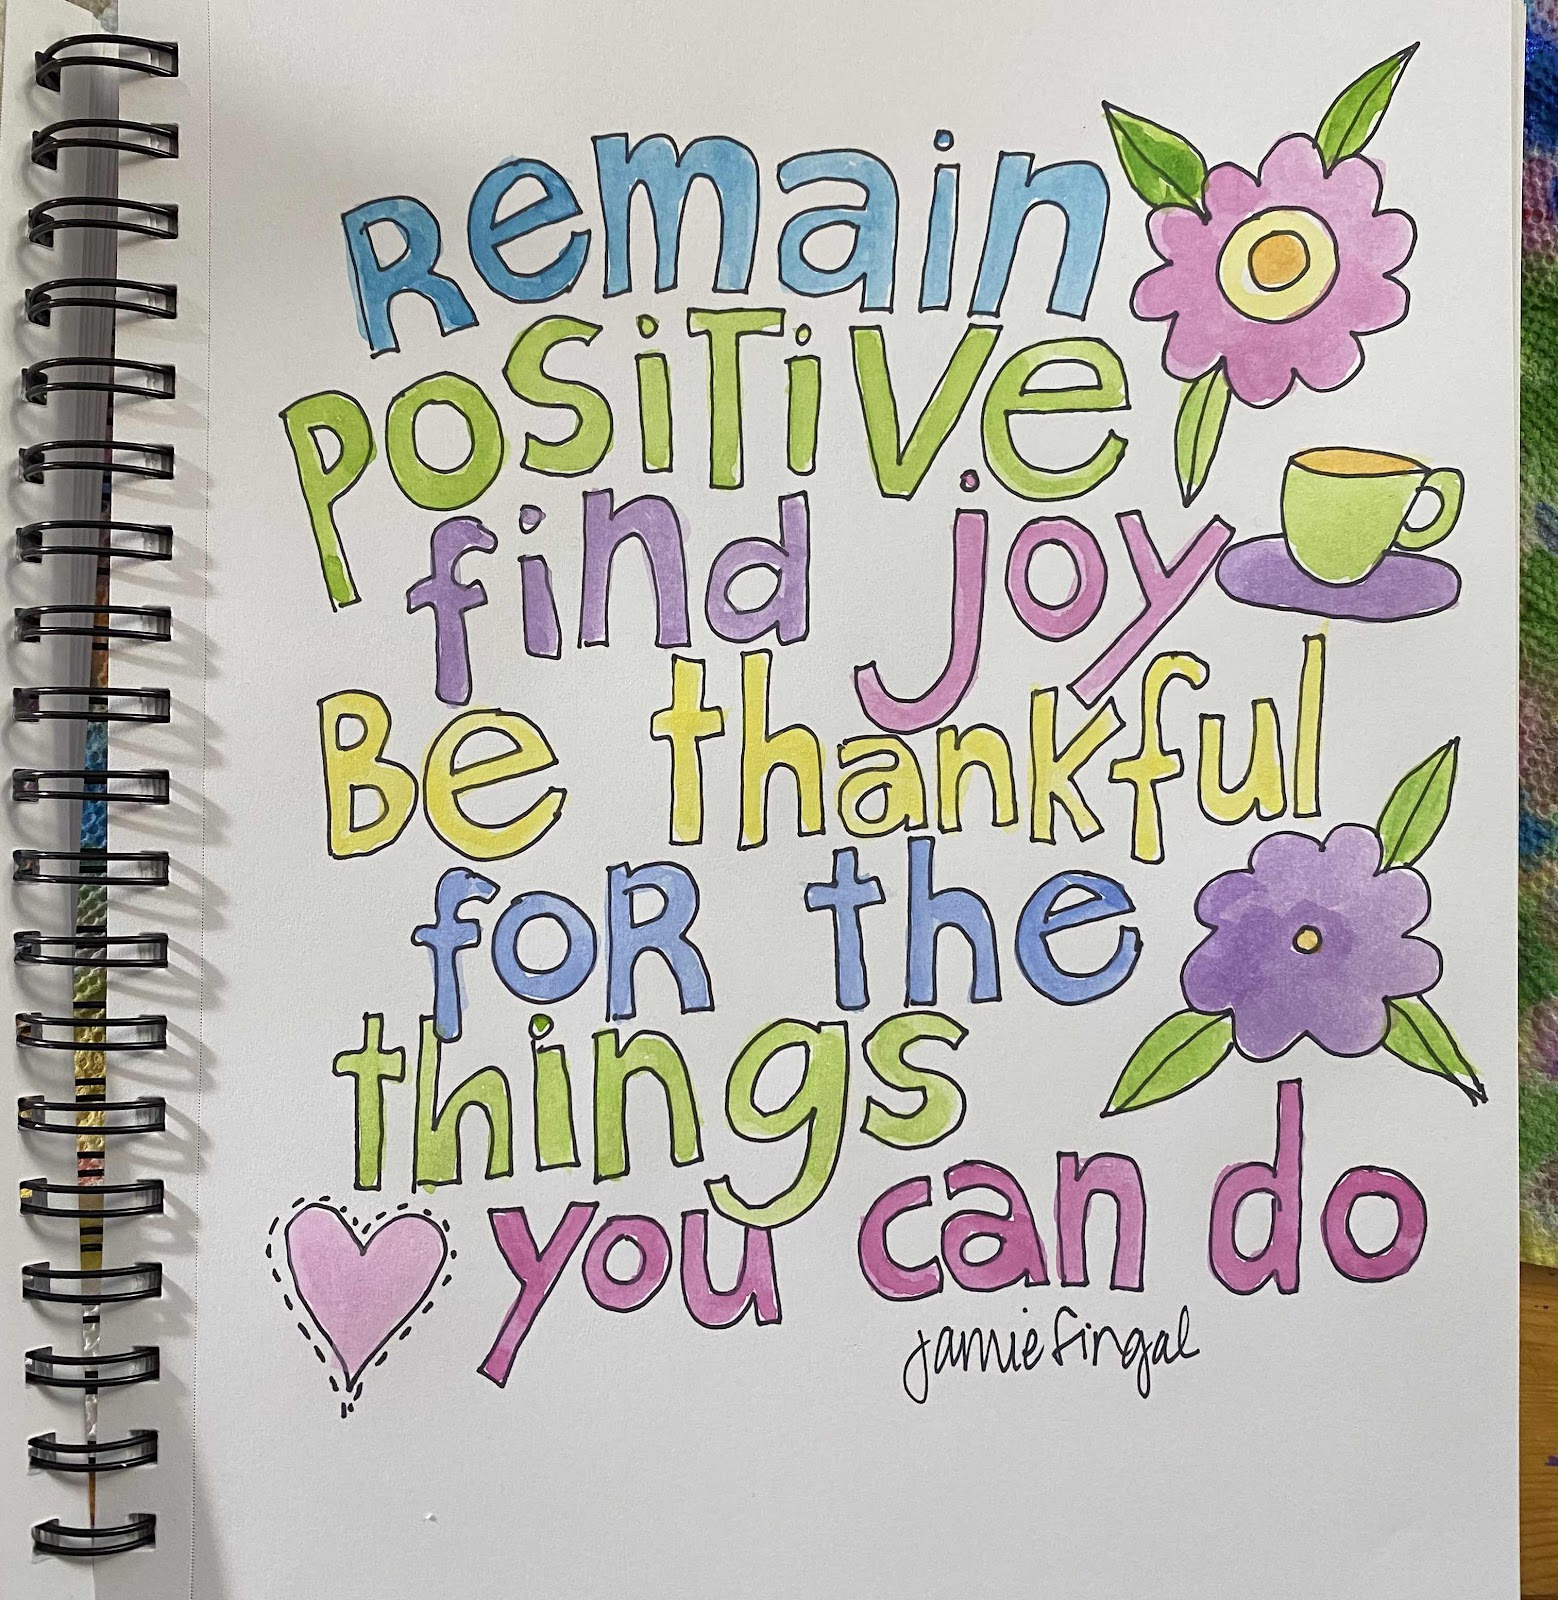 Remain
positive
find joy
Be thankful
for the
things
you can do
jamie fingal